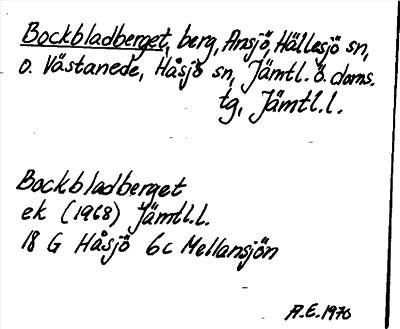 Bockbladberget, berg, Ansjö, Hällesjö sn,
o. Västanede, Håsjö sn, Jämtl. ö. doms.
tg, Jämtl.l.
Bockbladberget
ek (1968) Jämtl.l.
18 G Håsjö 6c Mellansjön
A.E. 1970